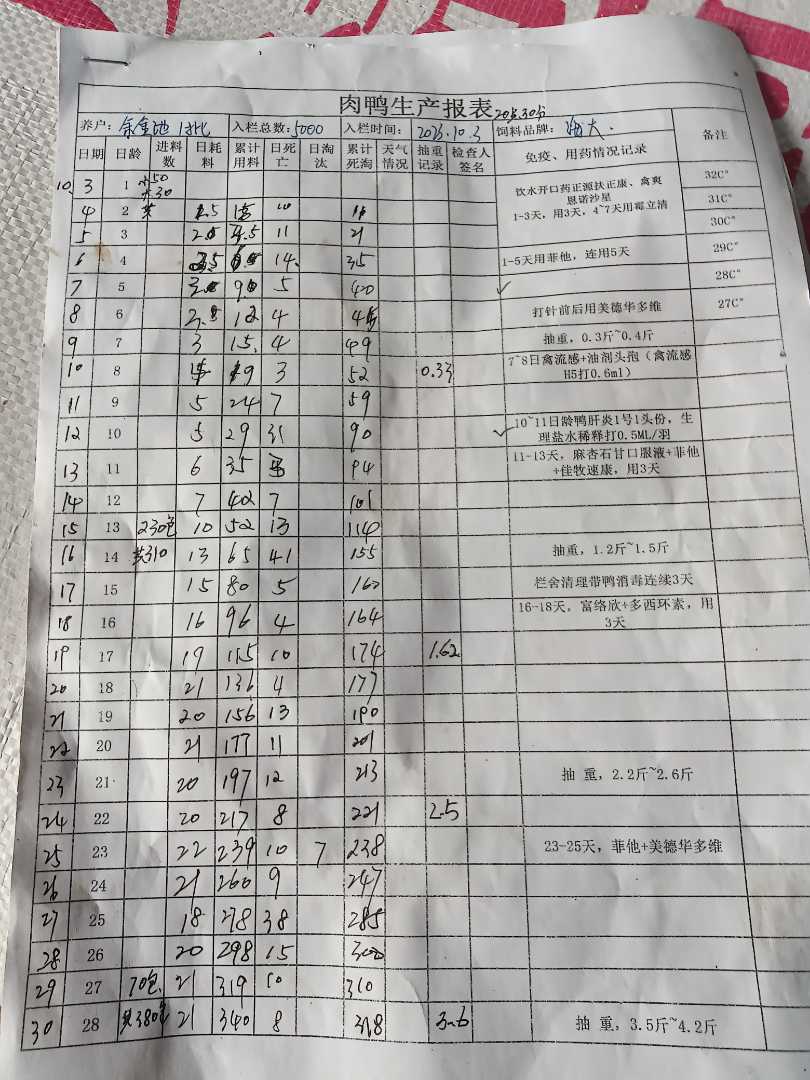 肉鸭生产报表
养户: 入栏总数:5000 入栏时间: 2023.10.3 饲料品牌: 海大. 备注
日期 日龄 进料数 日耗料 累计用料 日死亡 日淘汰 累计死淘 天气情况 抽重记录 检查人签名 免疫、用药情况记录
10.3 1 饮水开口药正源扶正康、禽爽恩诺沙星 32C°
4 2 1.5 10 1-3天，用3天，4~7天用霉立清 31C°
5 3 11 21 30C°
6 4 14 35 1-5天用菲他，连用5天 29C°
7 5 5 40 ✓ 28C°
8 6 12 4 打针前后用美德华多维 27C°
9 7 3 15. 4 49 抽重，0.3斤~0.4斤
10 8 3 52 0.33 7~8日禽流感+油剂头孢（禽流感H5打0.6ml）
11 9 5 24 7 59
12 10 5 29 31 90 ✓ 10~11日龄鸭肝炎1号1头份，生理盐水稀释打0.5ML/羽
13 11 6 35 94 11-13天，麻杏石甘口服液+菲他+佳牧速康，用3天
14 12 7 402 7 101
15 13 230包 10 52 13 114
16 14 共310 13 65 41 155 抽重，1.2斤~1.5斤
17 15 15 80 5 160 栏舍清理带鸭消毒连续3天
18 16 16 96 4 164 16-18天，富络欣+多西环素，用3天
19 17 19 115 10 174 1.62
20 18 21 136 4 177
21 19 20 156 13 190
22 20 21 177 11 201
23 21 20 197 12 213 抽 重，2.2斤~2.6斤
24 22 20 217 8 221 2.5
25 23 22 239 10 7 238 23-25天，菲他+美德华多维
26 24 21 260 9 247
27 25 18 278 38 285
28 26 20 298 15 300
29 27 70包 21 319 10 310
30 28 共380包 21 340 8 318 3.6 抽 重，3.5斤~4.2斤